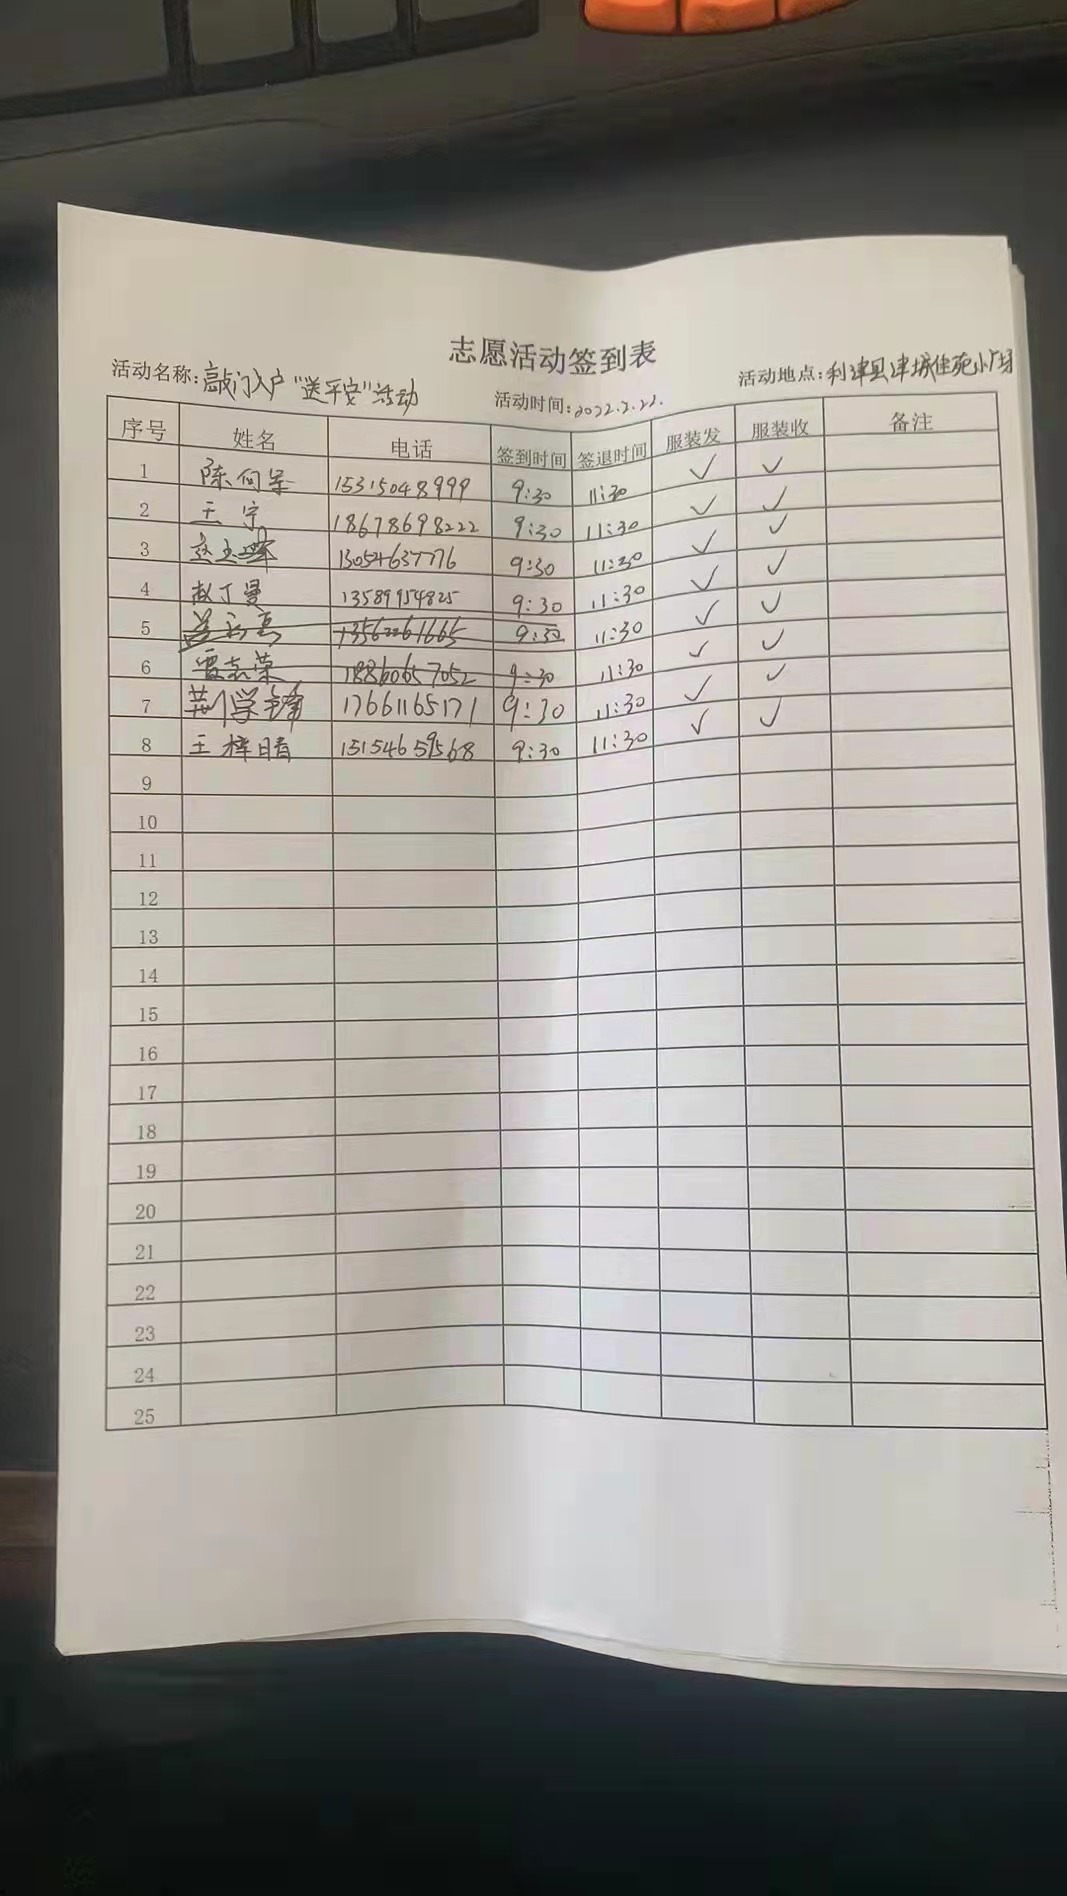 志愿活动签到表
活动名称:敲门入户"送平安"活动 活动时间:2022.2.22. 活动地点:利津县津城佳苑小广场
序号 姓名 电话 签到时间 签退时间 服装发 服装收 备注
1 陈向军 15315048999 9:30 11:30 ✓ ✓
2 王宇 18678698222 9:30 11:30 ✓ ✓
3 13054637776 9:30 11:30 ✓ ✓
4 赵丁曼 13589954825 9:30 11:30 ✓ ✓
5 13562261665 9:30 11:30 ✓ ✓
6 雷志荣 18860657052 9:30 11:30 ✓ ✓
7 荆学锋 17661165171 9:30 11:30 ✓ ✓
8 王梓晴 15154659568 9:30 11:30 ✓ ✓
9
10
11
12
13
14
15
16
17
18
19
20
21
22
23
24
25